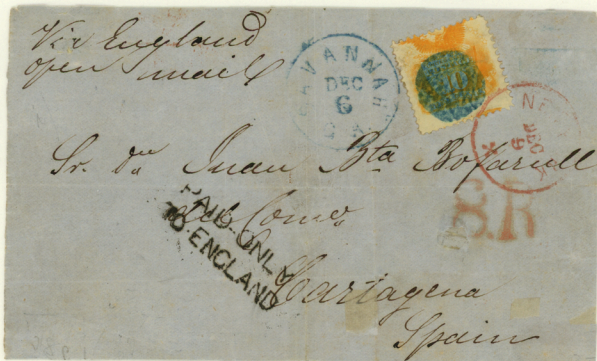 Via England
open mail
SAVANNAH
DEC
6
GA.
NEW
DEC
9
Sr. Dn Juan Bta Bofarull
del Como
8.R
PAID-ONLY
TO-ENGLAND
Cartagena
Spain